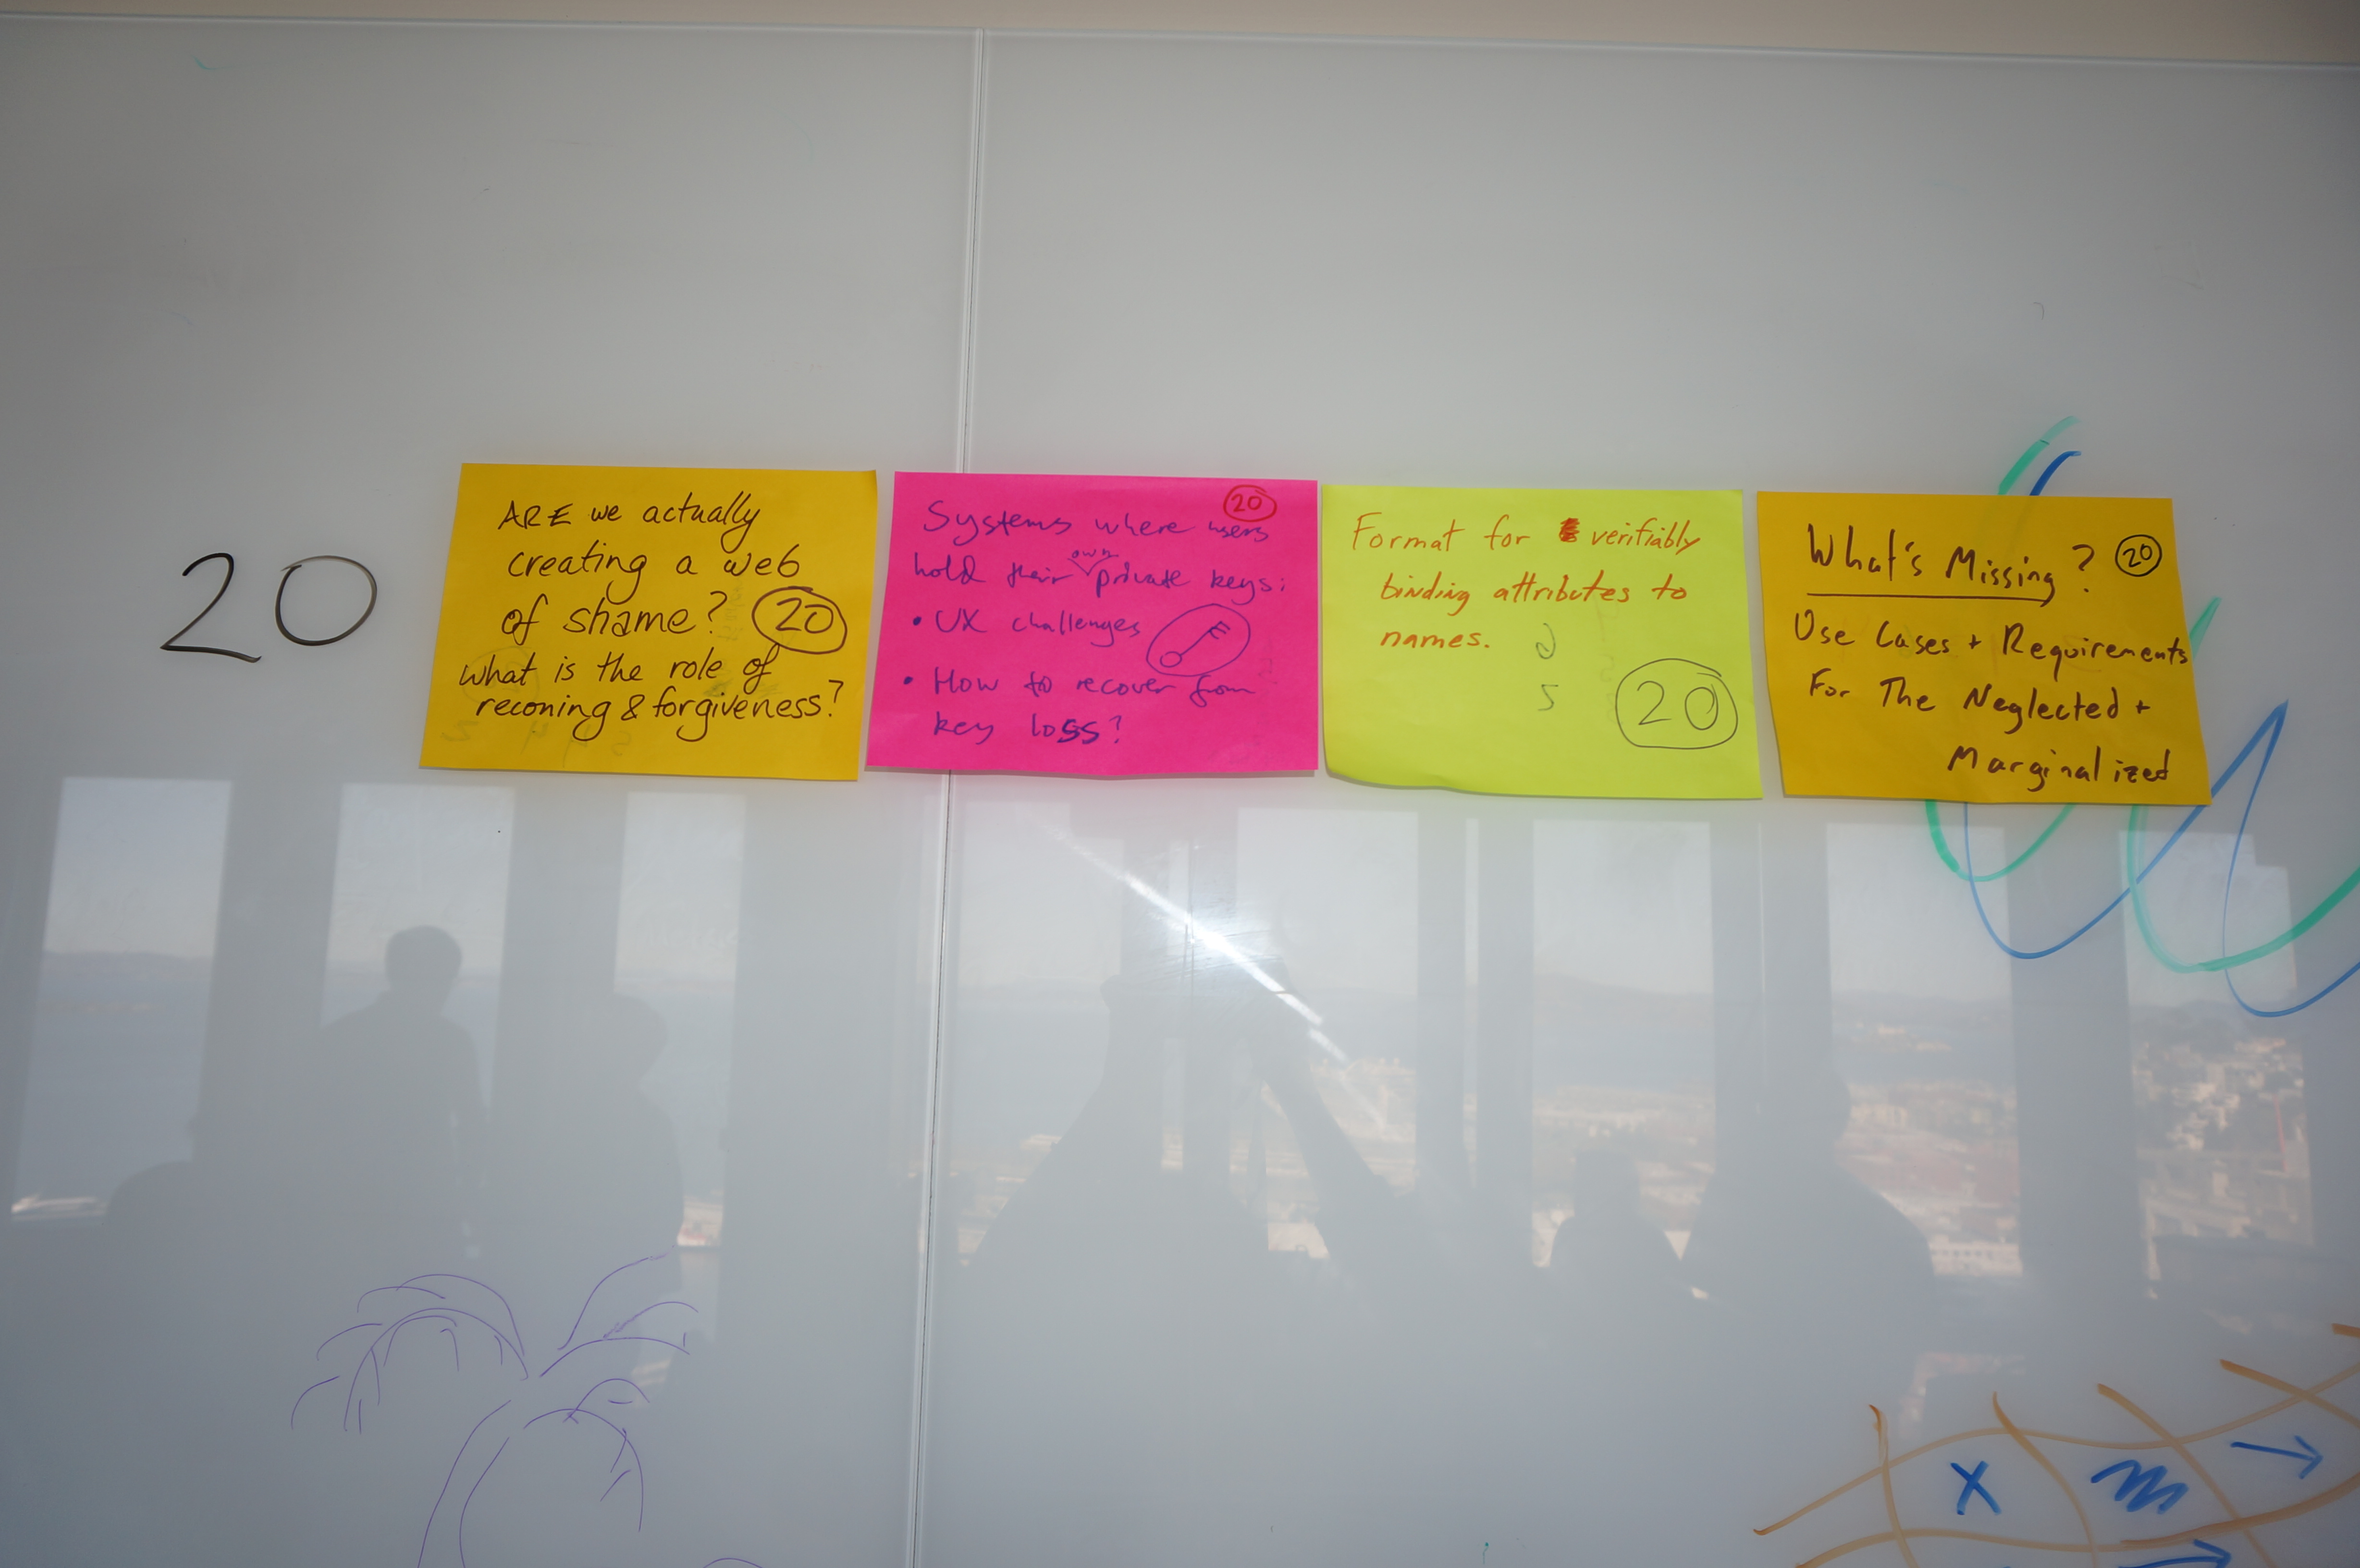 20
ARE we actually
creating a web
of shame?
20
what is the role of
reconing & forgiveness?
20
Systems where users
hold their own private keys:
• UX challenges
• How to recover from
key loss?
Format for verifiably
binding attributes to
names.
20
What's Missing?
20
Use Cases + Requirements
For The Neglected +
Marginalized
X